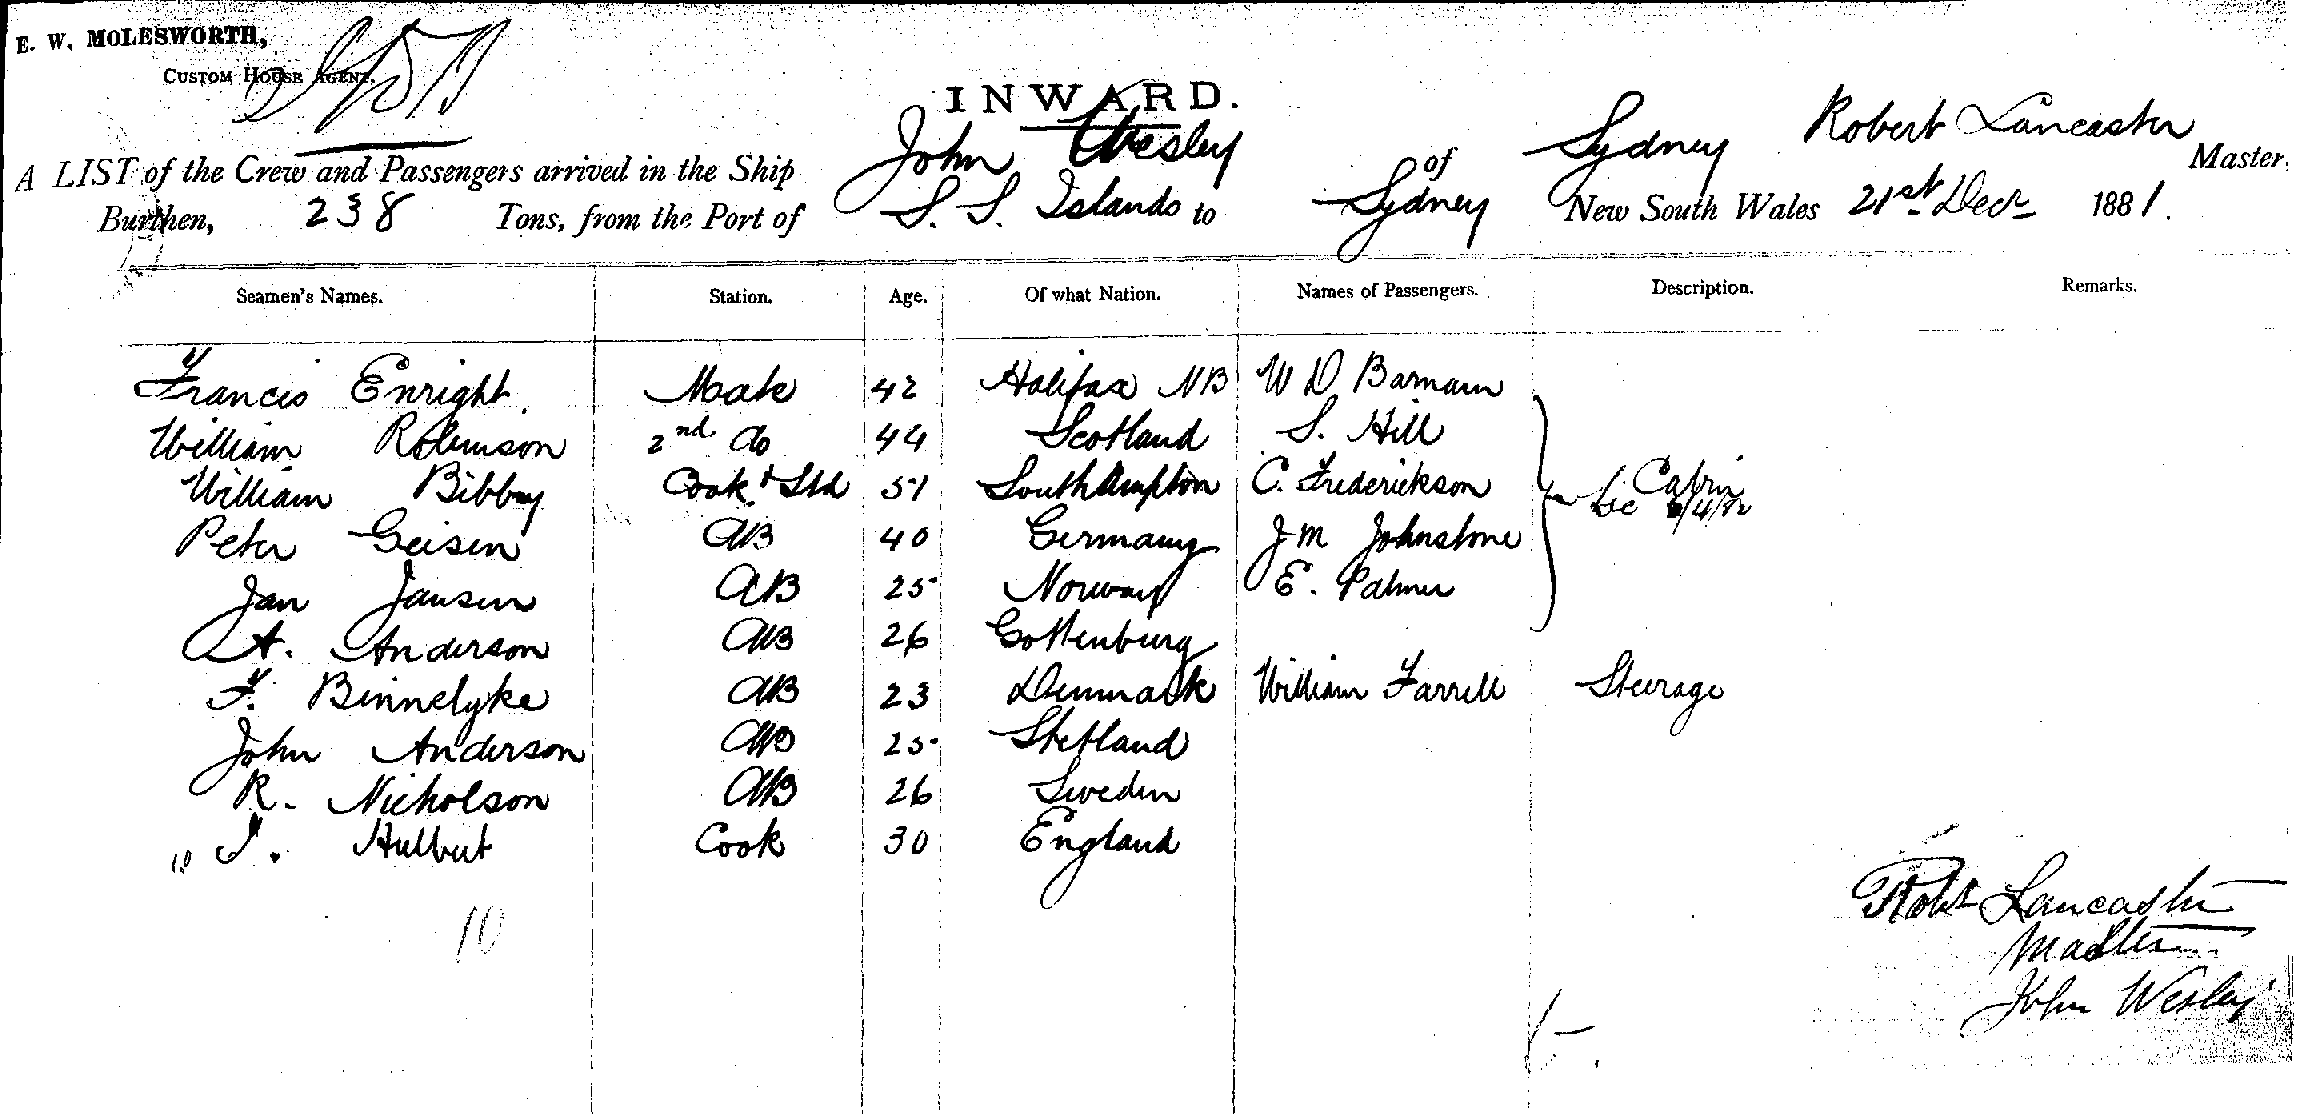 E. W. MOLESWORTH,
CUSTOM HOUSE AGENT.
INWARD.
A LIST of the Crew and Passengers arrived in the Ship John Wesley of Sydney Robert Lancaster Master,
Burthen, 238 Tons, from the Port of S. S. Islands to Sydney New South Wales 21st Decr 1881.
Seamen's Names. Station. Age. Of what Nation. Names of Passengers. Description. Remarks.
Francis Enright. Mate 42 Halifax NB W D Barnam
William Robinson 2nd Do 44 Scotland S. Hill
William Bibby Cook & Std 51 Southampton C. Frederickson Cabin
Peter Geisen AB 40 Germany J M Johnstone
Jan Jansen AB 25 Norway E. Palmer
A. Anderson AB 26 Gottenburg
F. Binnelyke AB 23 Denmark William Farrell Steerage
John Anderson AB 25 Shetland
R. Nicholson AB 26 Sweden
10 J. Hulbut Cook 30 England
10
Robt Lancaster
Master
John Wesley